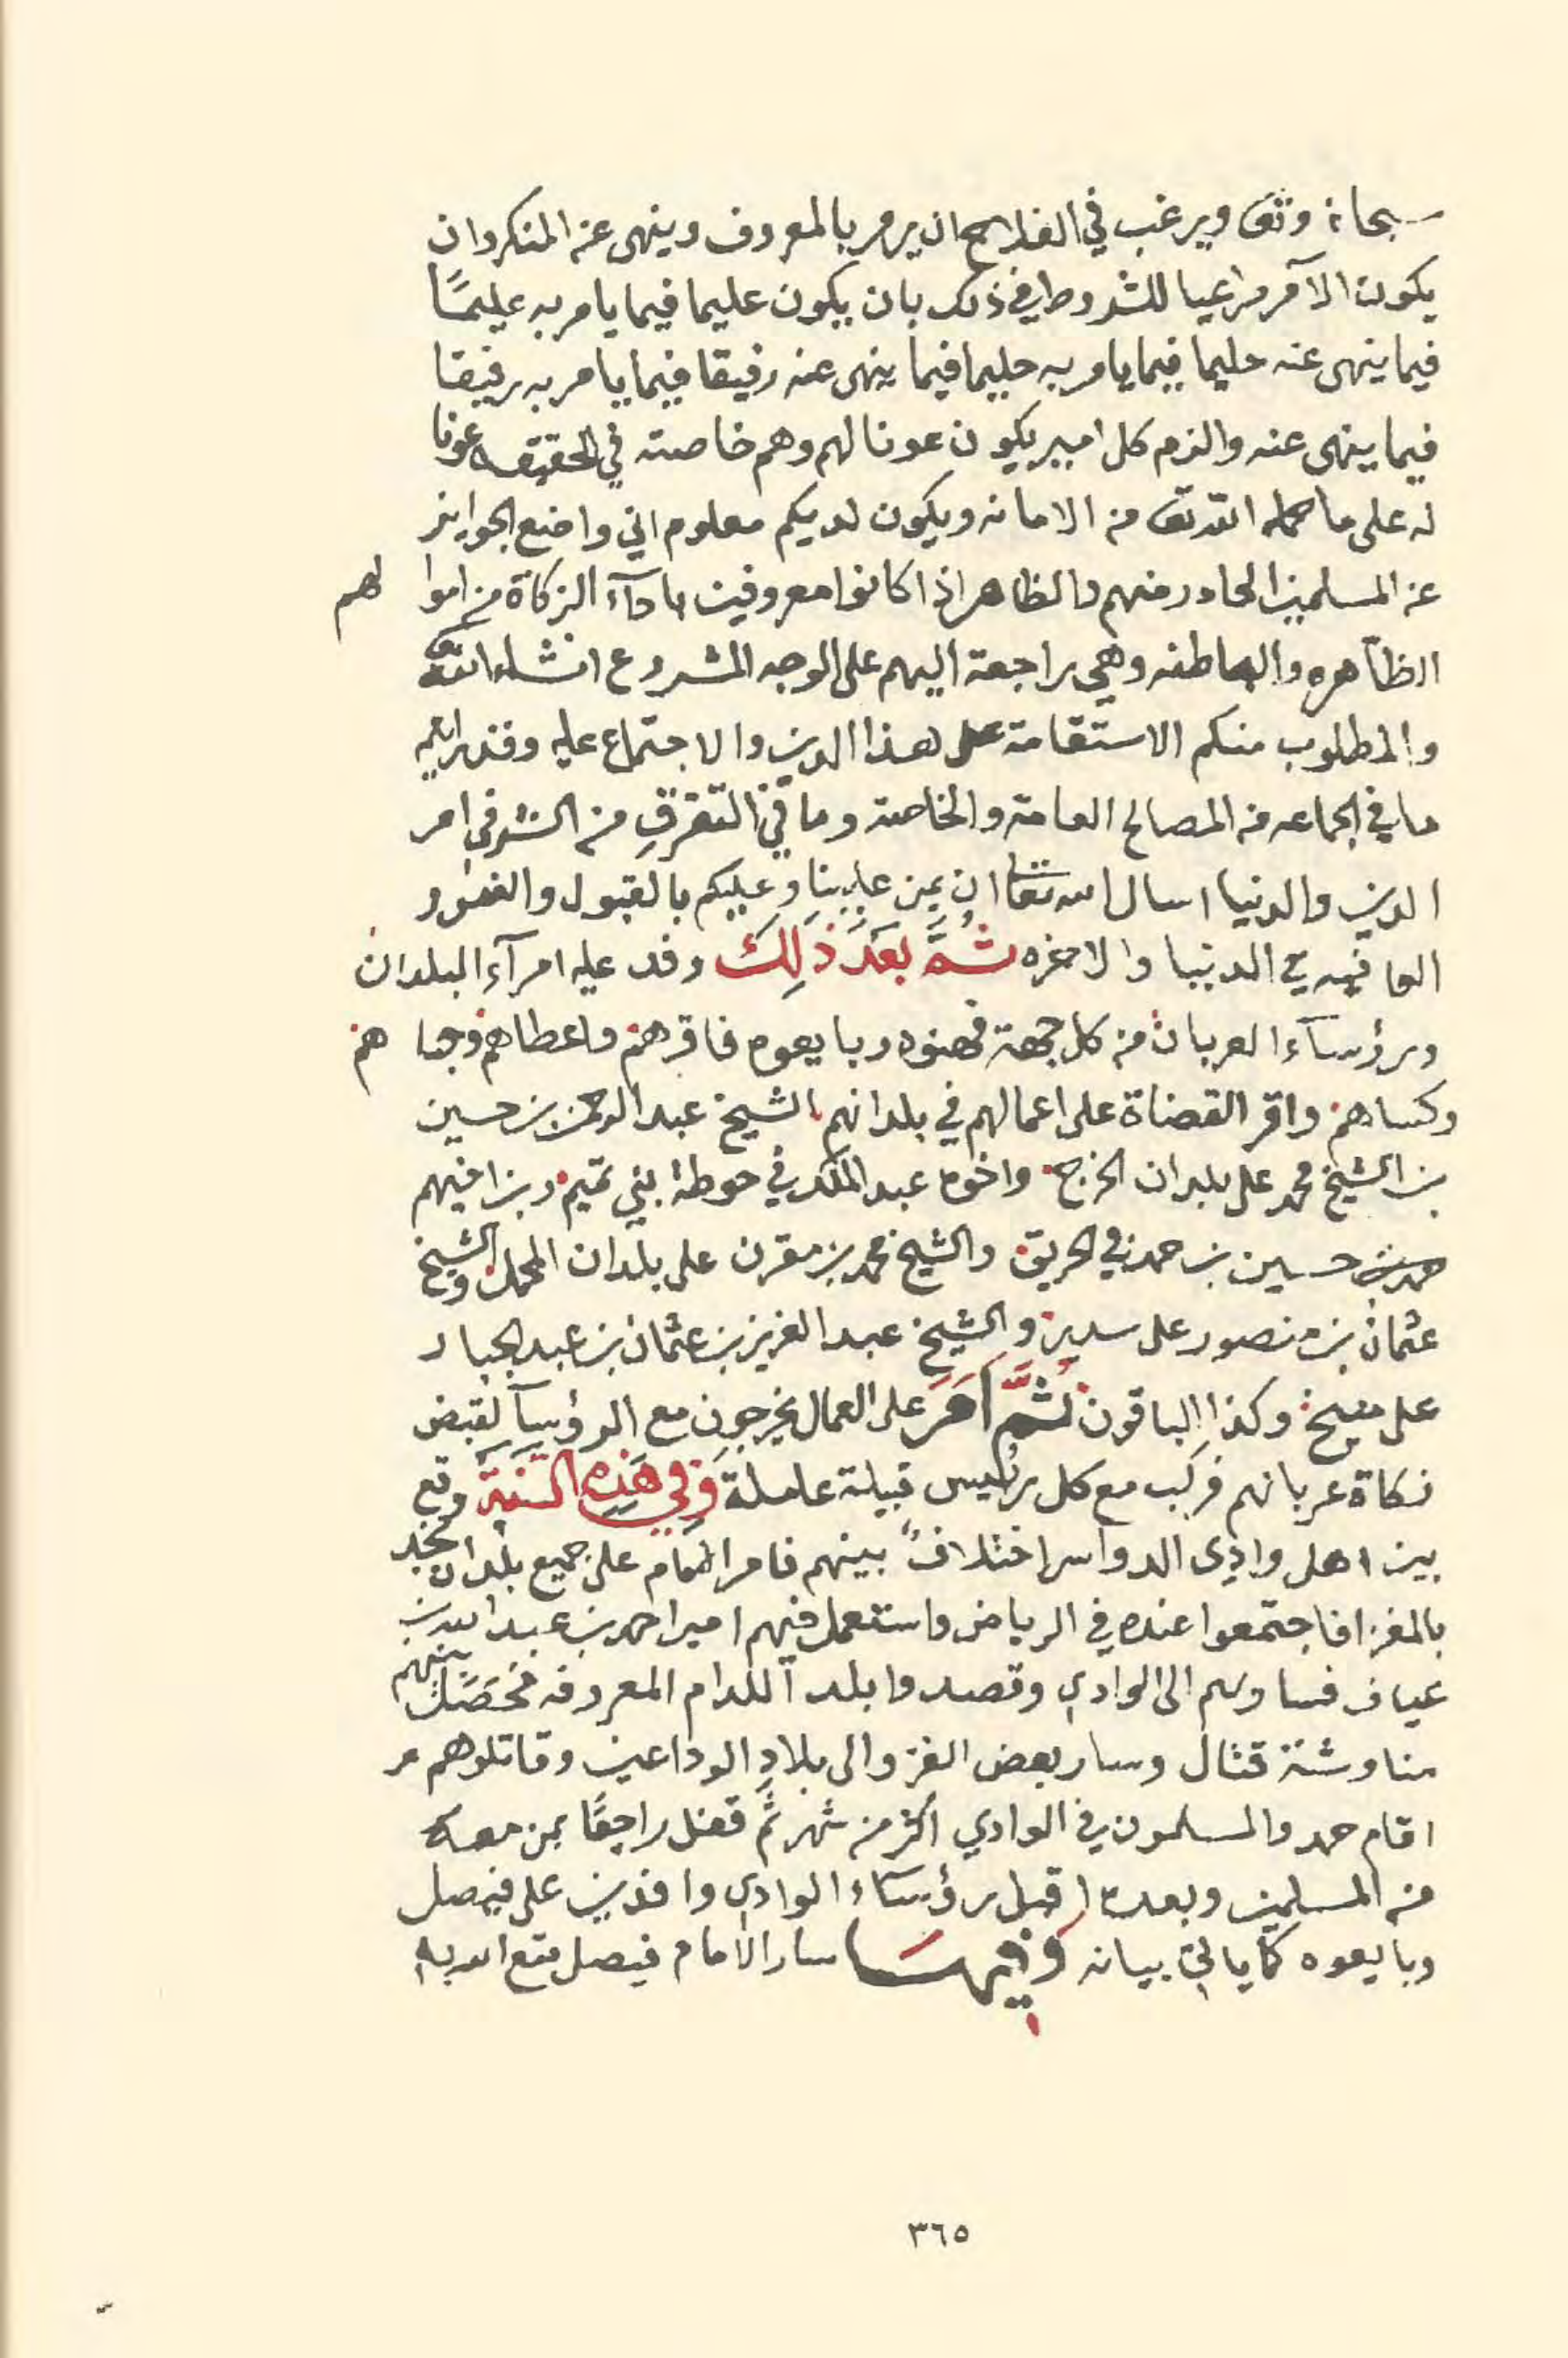 سبحانه وتعالى ويرغب في الفلاح ان يرمر بالمعروف وينهى عن المنكر وان
يكون الآمر مراعيا للشروط في ذلك بان يكون عليما فيما يامر به عليمًا
فيما ينهى عنه حليما فيما يامر به حليما فيما ينهى عنه رفيقا فيما يامر به رفيقا
فيما ينهى عنه والزم كل امير يكون عونا لهم وهم خاصته في الحقيقه عونا
له على ما حمله الله تعالى من الامانه ويكون لديكم معلوم اني واضع الجوايز
عن المسلمين الحادر منهم والظاهر اذا كانوا معروفين باداء الزكاة من اموالهم
الظاهره والباطنه وهي راجعة اليهم على الوجه المشروع انشاء الله تعالى
والمطلوب منكم الاستقامة على هذا الدين والاجتماع عليه وقد رايتم
ما في الجماعه من المصالح العامة والخاصة وما في التفرقِ من الشر في امر
الدين والدنيا اسال الله تعالى ان يمن علينا وعليكم بالقبول والعفو و
العافيه في الدنيا والاخره ثُمَّ بَعَدَ ذَلِكَ وفد عليه امرآء البلدان
ورؤسآء العربان من كل جهة فهنوه وبايعوه فاقرهم واعطاهم وحباهم
وكساهم واقر القضاة على اعمالهم في بلدانهم الشيخ عبد الرحمن بن حسين
بن الشيخ محمد على بلدان الخرج واخوه عبد الملك في حوطة بني تميم وبن اخيهم
حسين بن حمد في الحريق والشيخ محمد بن مقرن على بلدان المحمل والشيخ
عثمان بن منصور على سدير والشيخ عبد العزيز بن عثمان بن عبد الجبار
على منيخ وكذا الباقون ثُمَّ اَمَرَ على العمال يخرجون مع الرؤسآ لقبض
زكاة عربانهم فركب مع كل رئيس قبيلة عاملة وَفِي هَذِهِ السَّنَةِ وقع
بين اهل وادى الدواسر اختلافٌ بينهم فامر الامام على جميع بلدان نجد
بالمغزا فاجتمعوا عنده في الرياض واستعمل فيهم اميرا حمد بن عبد الله بن
عياف فسار بهم الى الوادي وقصدوا بلد آللدام المعروفه فحَصَلَ بينهم
مناوشة قتال وسار بعض الغزو الى بلادِ الوداعين وقاتلوهم و
اقام حمد والمسلمون في الوادي اكثر من شهر ثم قفل راجعًا بمن معه
من المسلمين وبعده اقبل رؤساء الوادي وافدين على فيصل
وبايعوه كما ياتي بيانه وَفيهَا سار الامام فيصل متع الله به
٣٦٥